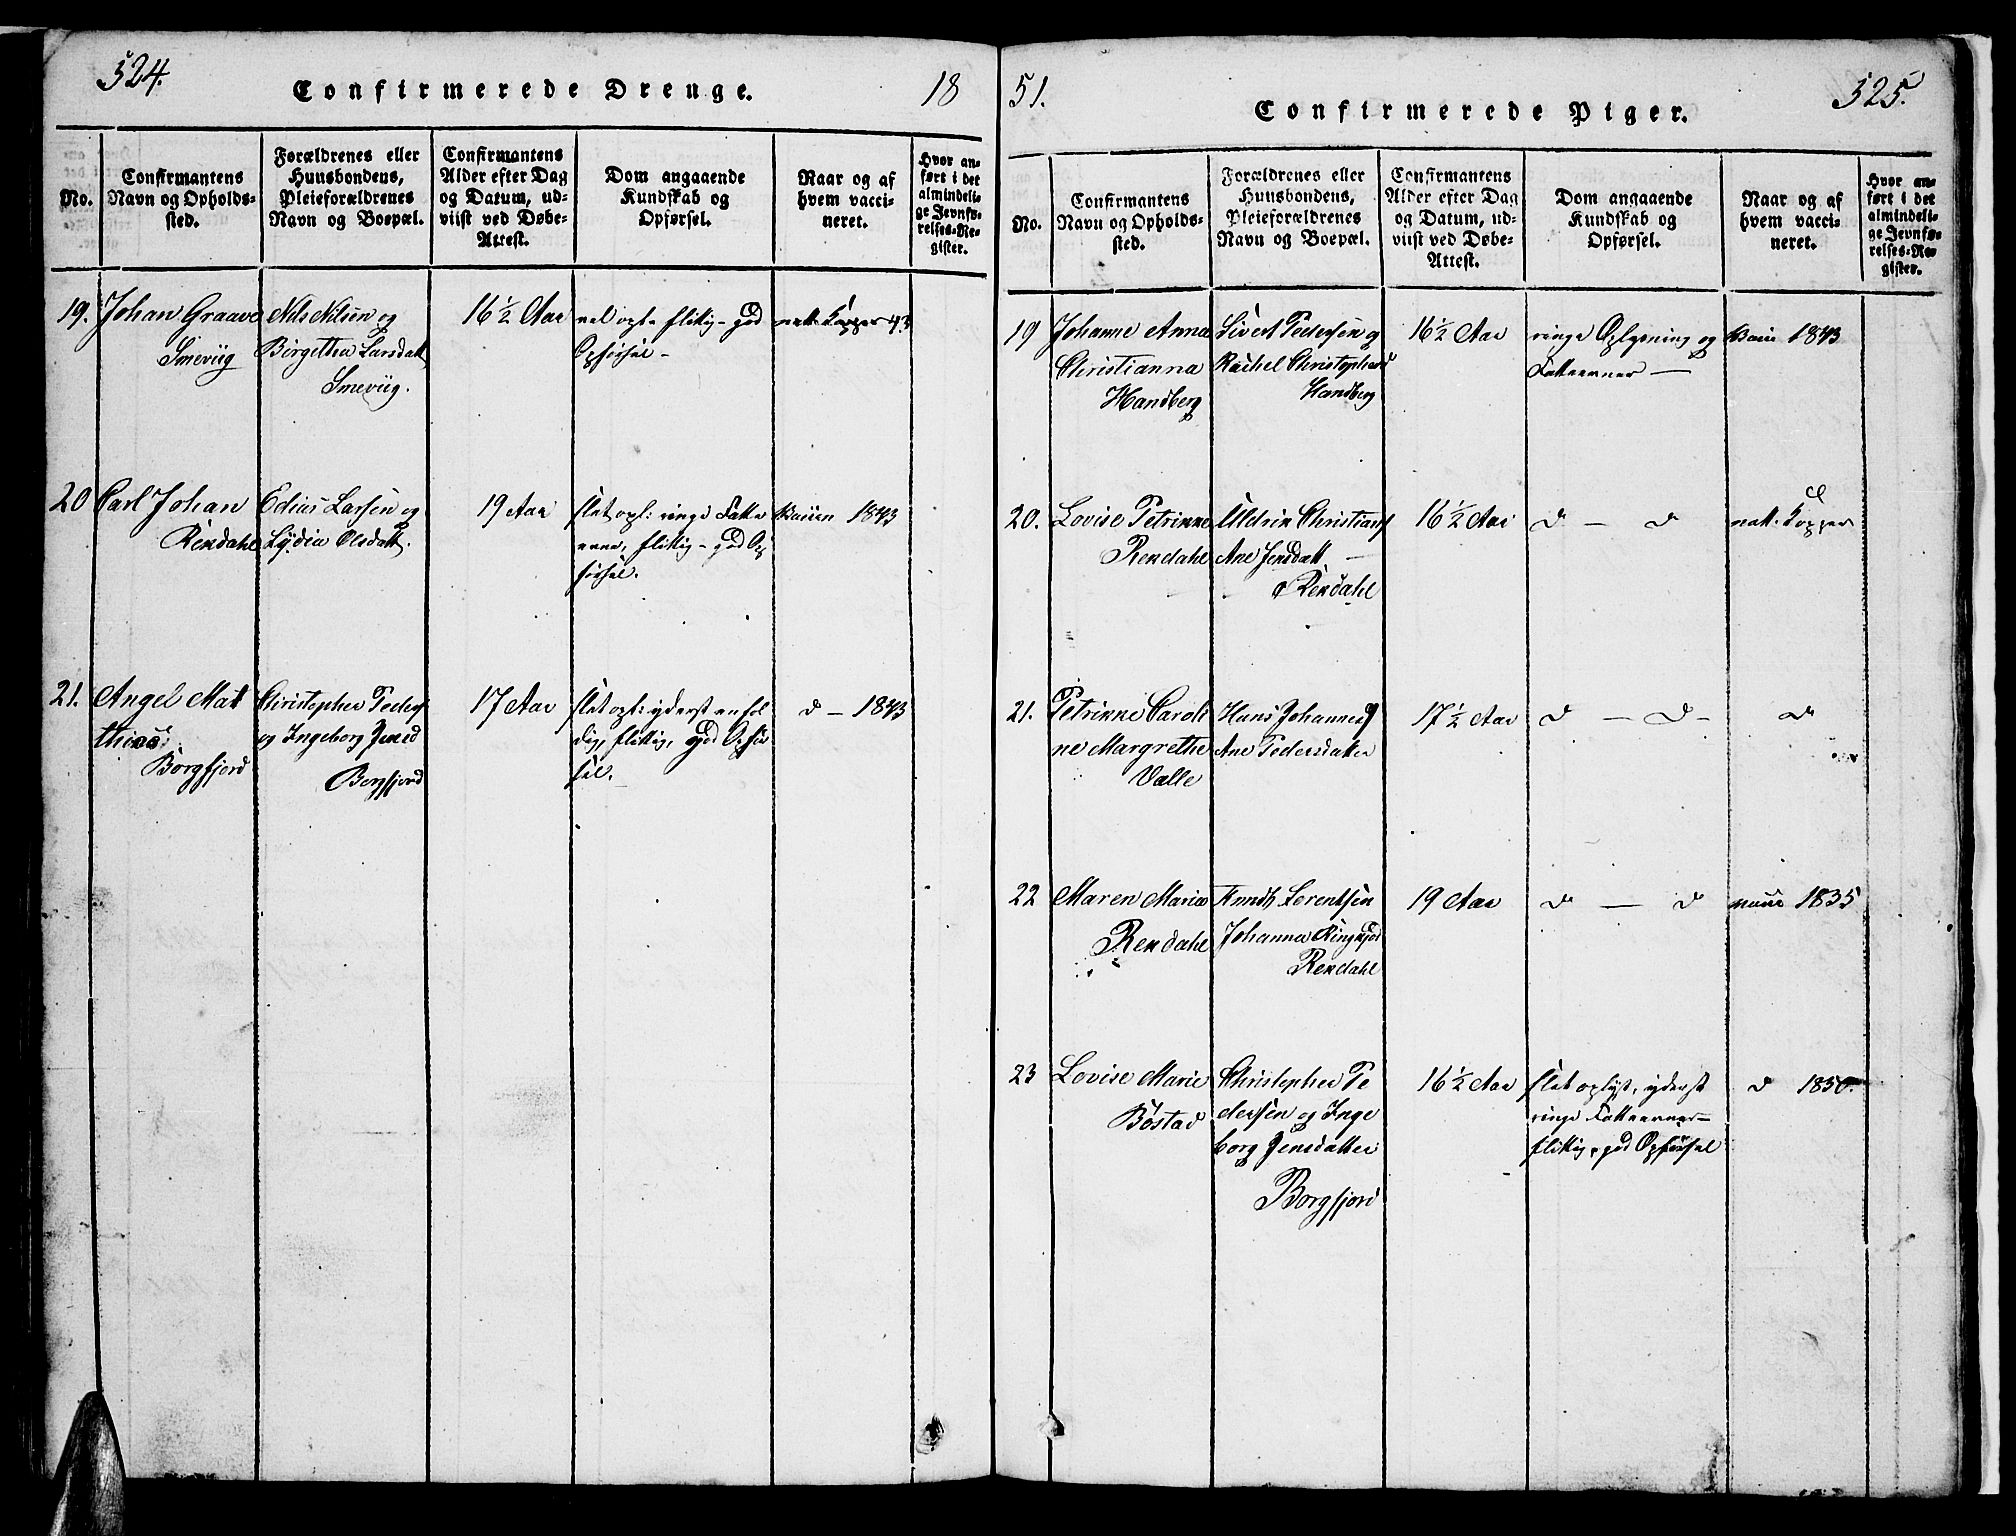 324.
Confirmerede Drenge.
18
No.
Confirmantens
Navn og Opholds-
sted.
Forældrenes eller
Huusbondens,
Pleieforældrenes
Navn og Boepæl.
Confirmantens
Alder efter Dag
og Datum, ud-
viist ved Døbe-
Attest.
Dom angaaende
Kundskab og
Opførsel.
Naar og af
hvem vacci-
neret.
Hvor an-
ført i det
almindeli-
ge Jevnfø-
relses-Re-
gister.
19. Johan Graave
Smeviig
Nils Nilsen og
Birgettha Larsdatt
Smeviig.
16 ½ Aar
vel opl. flittig - god
Opførsel -
natt. Kopper 43
20 Carl Johan
Rendahl
Edias Larsen og
Lydia Olsdatt.
19 Aar
slet opl: ringe Fatte
evne, flittig - god Op
førsel.
1843
21. Angel Mat
thias
Borgfjord
Christopher Peders
og Ingeborg Jensd
Borgfjord
17 Aar
slet opl: yderst enfol
dig, flittig, god Opfør
sel.
d - 1843
51.
Confirmerede Piger.
325.
No.
Confirmantens
Navn og Opholds-
sted.
Forældrenes eller
Huusbondens,
Pleieforældrenes
Navn og Boepæl.
Confirmantens
Alder efter Dag
og Datum, ud-
viist ved Døbe-
Attest.
Dom angaaende
Kundskab og
Opførsel.
Naar og af
hvem vacci-
neret.
Hvor an-
ført i det
almindeli-
ge Jevnfø-
relses-Re-
gister.
19 Johanne Anna
Christianna
Handberg
Sivert Pedersen og
Rachel Christophersd
Handberg
16 ½ Aar
ringe Oplysning og
Fatteevner -
1843
20. Lovise Petrinne
Rendahl
Uldrik Christians
Ane Jensdatt -
Rendahl
16 ½ Aar
d - d
natt. Kopper
21. Petrinne Caroli
ne Margrethe
Valle
Hans Johannes
Ane Pedersdatter
17 ½ Aar
d - d -
d
22 Maren Maria
Rendahl
Lorentsen
Johanna
Rendahl
19 Aar
d - d
1835
23 Lovise Marie
Bostad
Christopher Pe
dersen og Inge
borg Jensdatter
Borgfjord
16 ½ Aar
slet oplyst, yderst
ringe Fatteevner -
flittig, god Opførsel
d 1850.